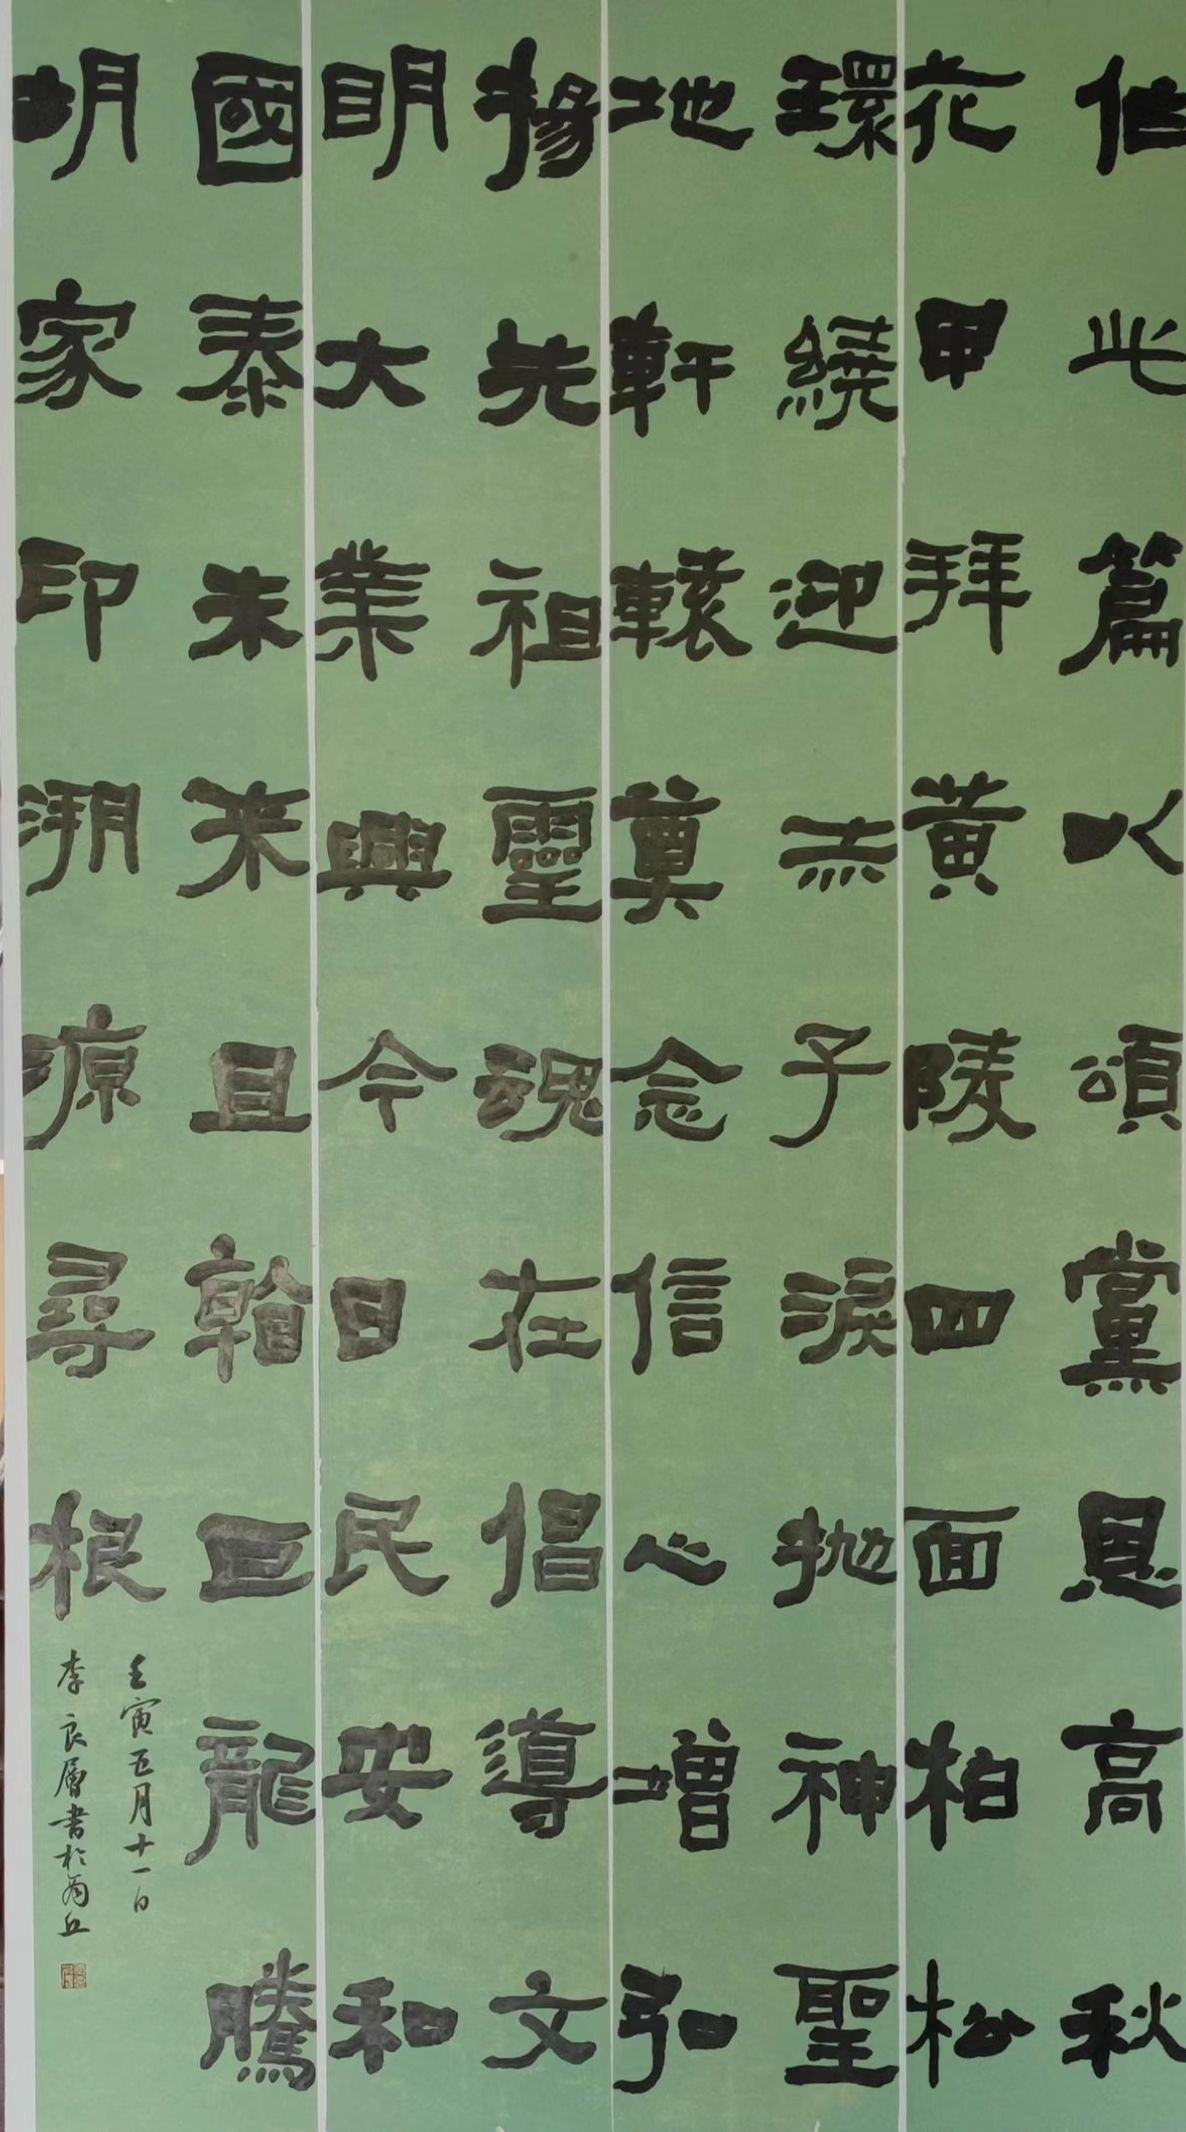 此篇以頌黨恩高秋
花甲拜黃陵四面柏松
環繞迎赤子淚拋神聖
地軒轅奠念信心增弘
揚先祖靈魂在倡導文
明大業興今日民安和
國泰未來且看巨龍騰
胡家印溯源尋根
壬寅五月十一日
李良層書於商丘